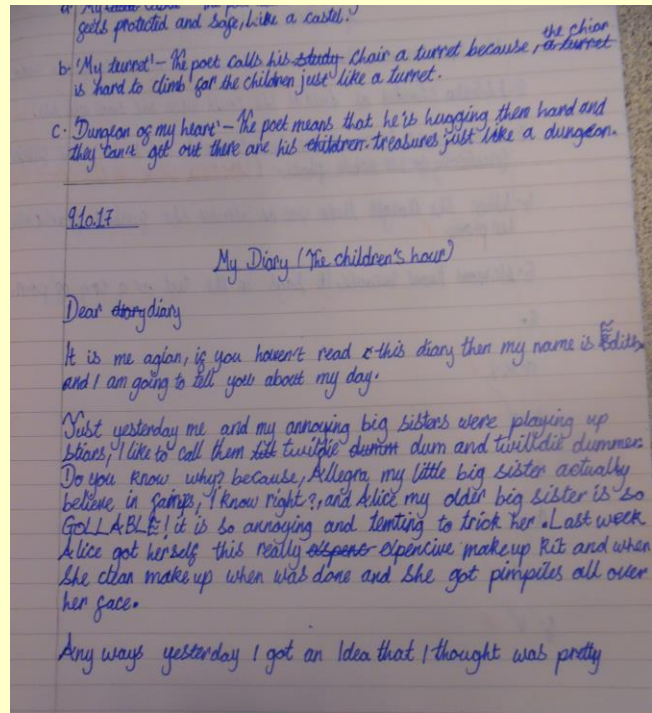 a. My
gets protected and safe, like a castel.
b. 'My turret' – The poet calls his study chair a turret because, the chiar a turret
is hard to climb for the children just like a turret.
c. 'Dungeon of my heart' – The poet means that he is hugging them hard and
they can't get out there are his children treasures just like a dungeon.
9.10.17
My Diary (The children's hour)
Dear diary diary
It is me agian, if you haven't read this diary then my name is Edith
and I am going to tell you about my day.
Just yesterday me and my annoying big sisters were playing up
stiars, I like to call them twildie dumm dum and twilldie dummer.
Do you know why? because, Allegra, my little big sister actually
believe in fairys, I know right?, and Alice my older big sister is so
GOLLABLE! it is so annoying and temting to trick her. Last week
Alice got herself this really expencive makeup kit and when
she clean makeup when was done and she got pimpiles all over
her face.
Any ways yesterday I got an Idea that I thought was pretty